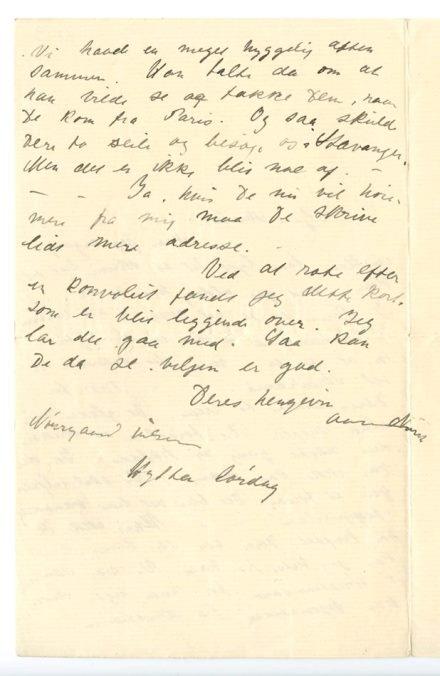 Vi havde en meget hyggelig aften
sammen. Han talte da om at
han vilde se og takke Dem, naar
De kom fra Paris. Og saa skulde
Dere to seile og besøge os i Stavanger.
Men det er ikke blit noe af. -
- - Ja, hvis De nu vil høre
mere fra mig maa De skrive
lidt mere adresse. -
Ved at rote efter
en konvolut fandt jeg dette kort
som er blit liggende over. Jeg
lar det gaa med. Saa kan
De da se viljen er god.
Deres hengivn
Hytten lördag